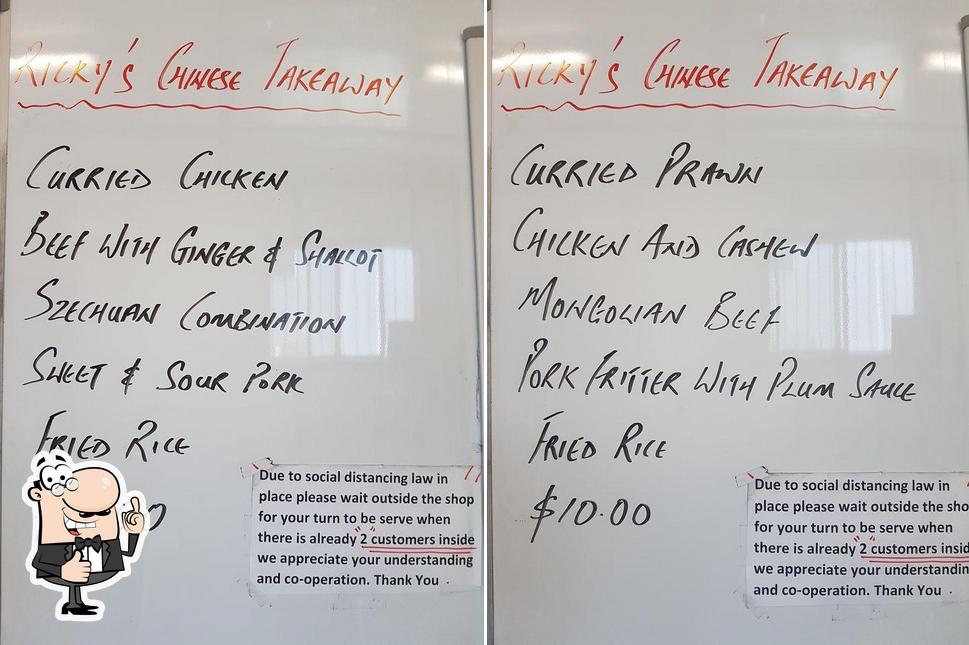 RICKY'S CHINESE TAKEAWAY
CURRIED CHICKEN
BEEF WITH GINGER & SHALLOT
SZECHUAN COMBINATION
SWEET & SOUR PORK
FRIED RICE
0
Due to social distancing law in
place please wait outside the shop
for your turn to be serve when
there is already "2 customers inside
we appreciate your understanding
and co-operation. Thank You .
RICKY'S CHINESE TAKEAWAY
CURRIED PRAWN
CHICKEN AND CASHEW
MONGOLIAN BEEF
PORK FRITTER WITH PLUM SAUCE
FRIED RICE
$10.00
Due to social distancing law in
place please wait outside the sho
for your turn to be serve when
there is already "2 customers insid
we appreciate your understandin
and co-operation. Thank You .